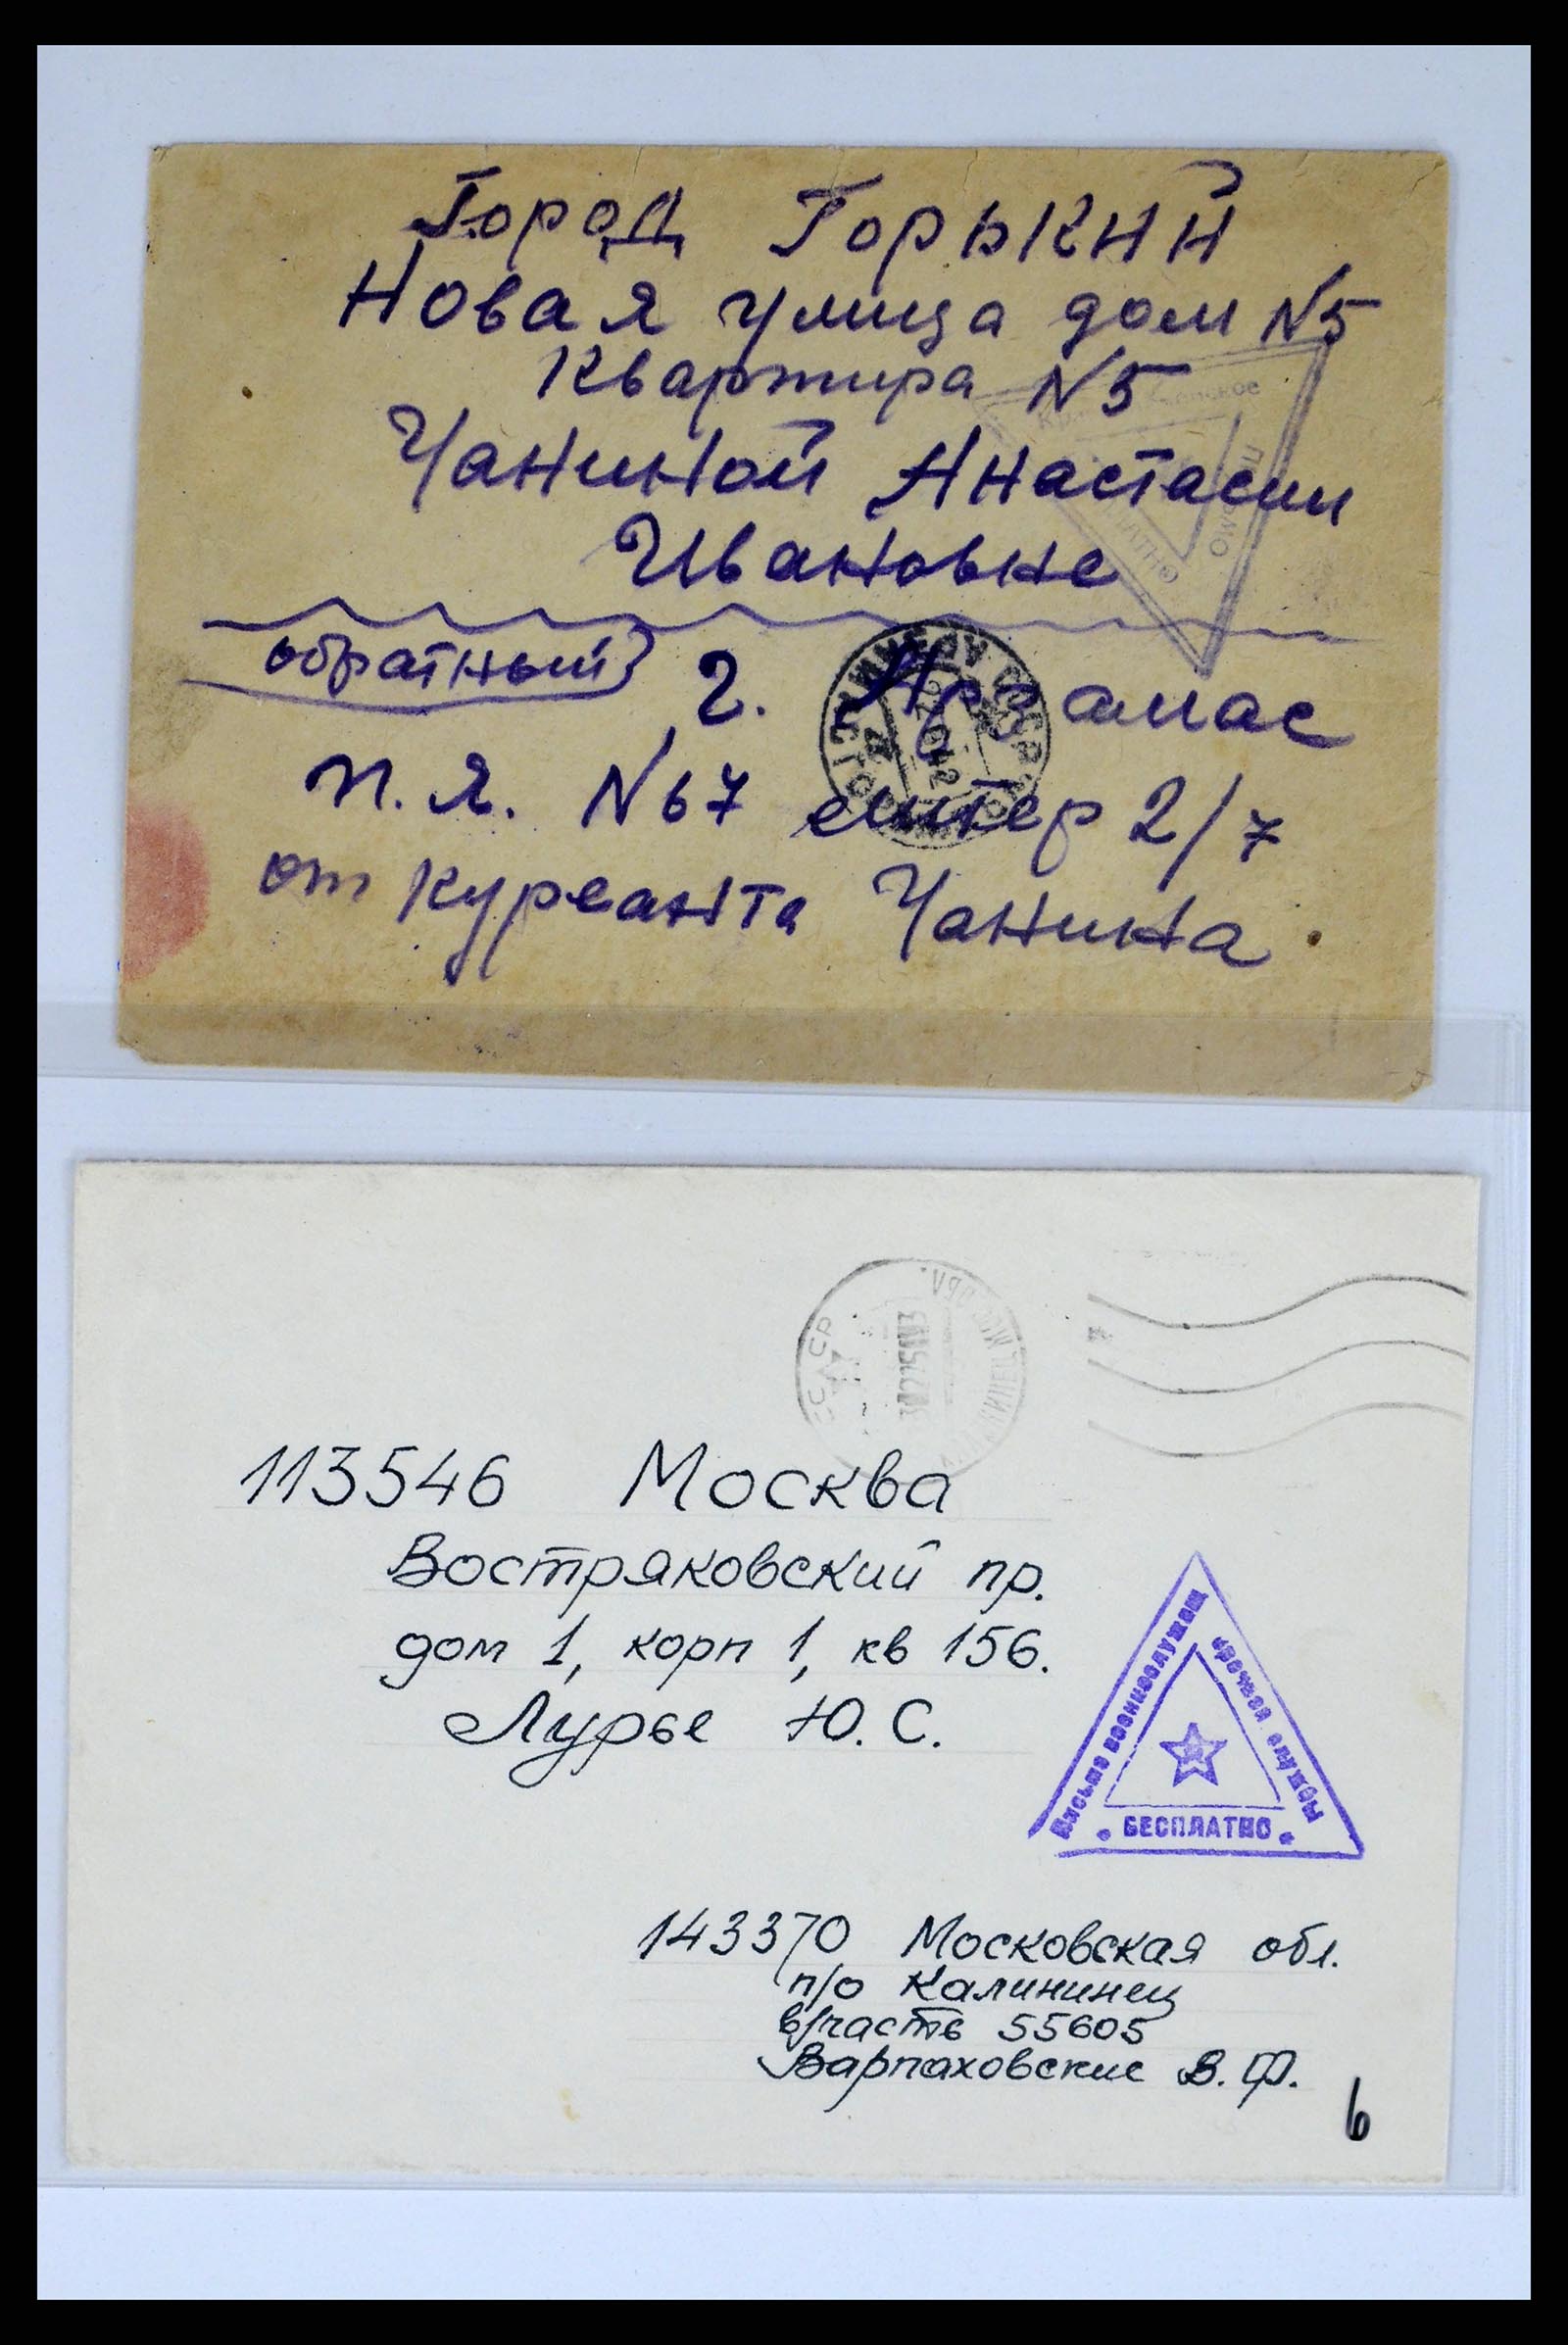 Город Горький
Новая улица дом N5
Квартира N5
Чаниной Анастасии
Ивановне
Красноармейское
письмо
бесплатно
обратный г. Арзамас
п.я. N67 литер 2/7
от курсанта Чанина
113546 Москва
Востряковский пр.
дом 1, корп 1, кв 156.
Лурье Ю. С.
Письмо военнослужащ
срочной службы
БЕСПЛАТНО
143370 Московская обл.
п/о Калининец
в/часть 55605
Варпаховские В. Ф.
6